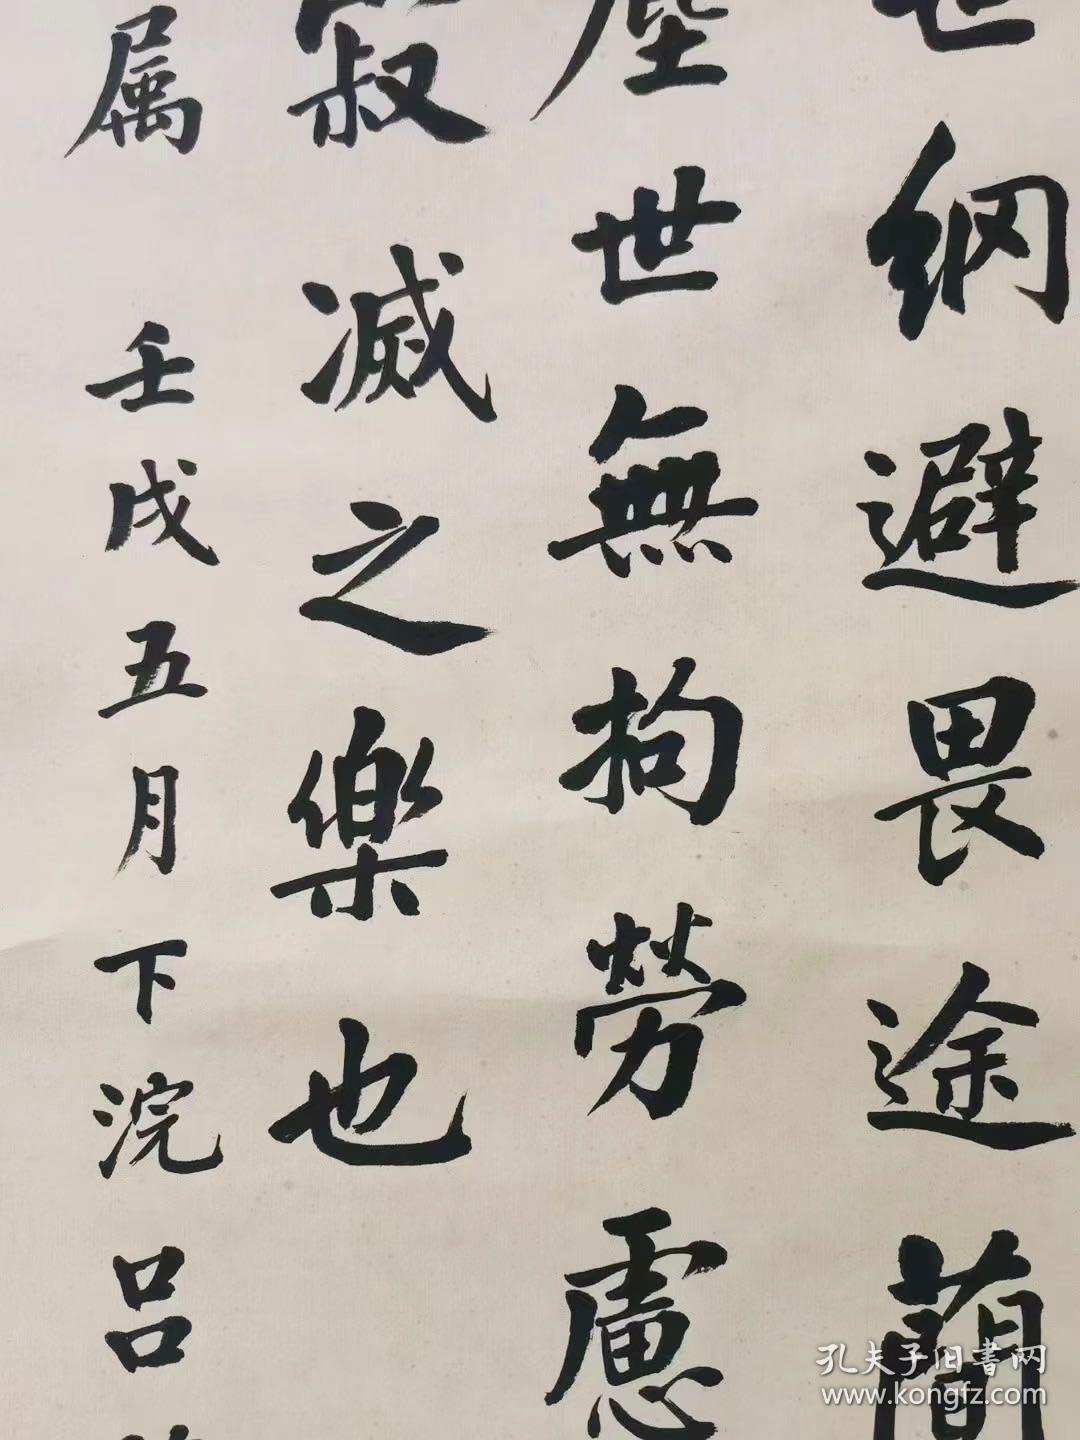 世網避畏途蕳
塵世無拘勞慮
寂滅之樂也
属 壬戌五月下浣吕
孔夫子旧书网
www.kongfz.com